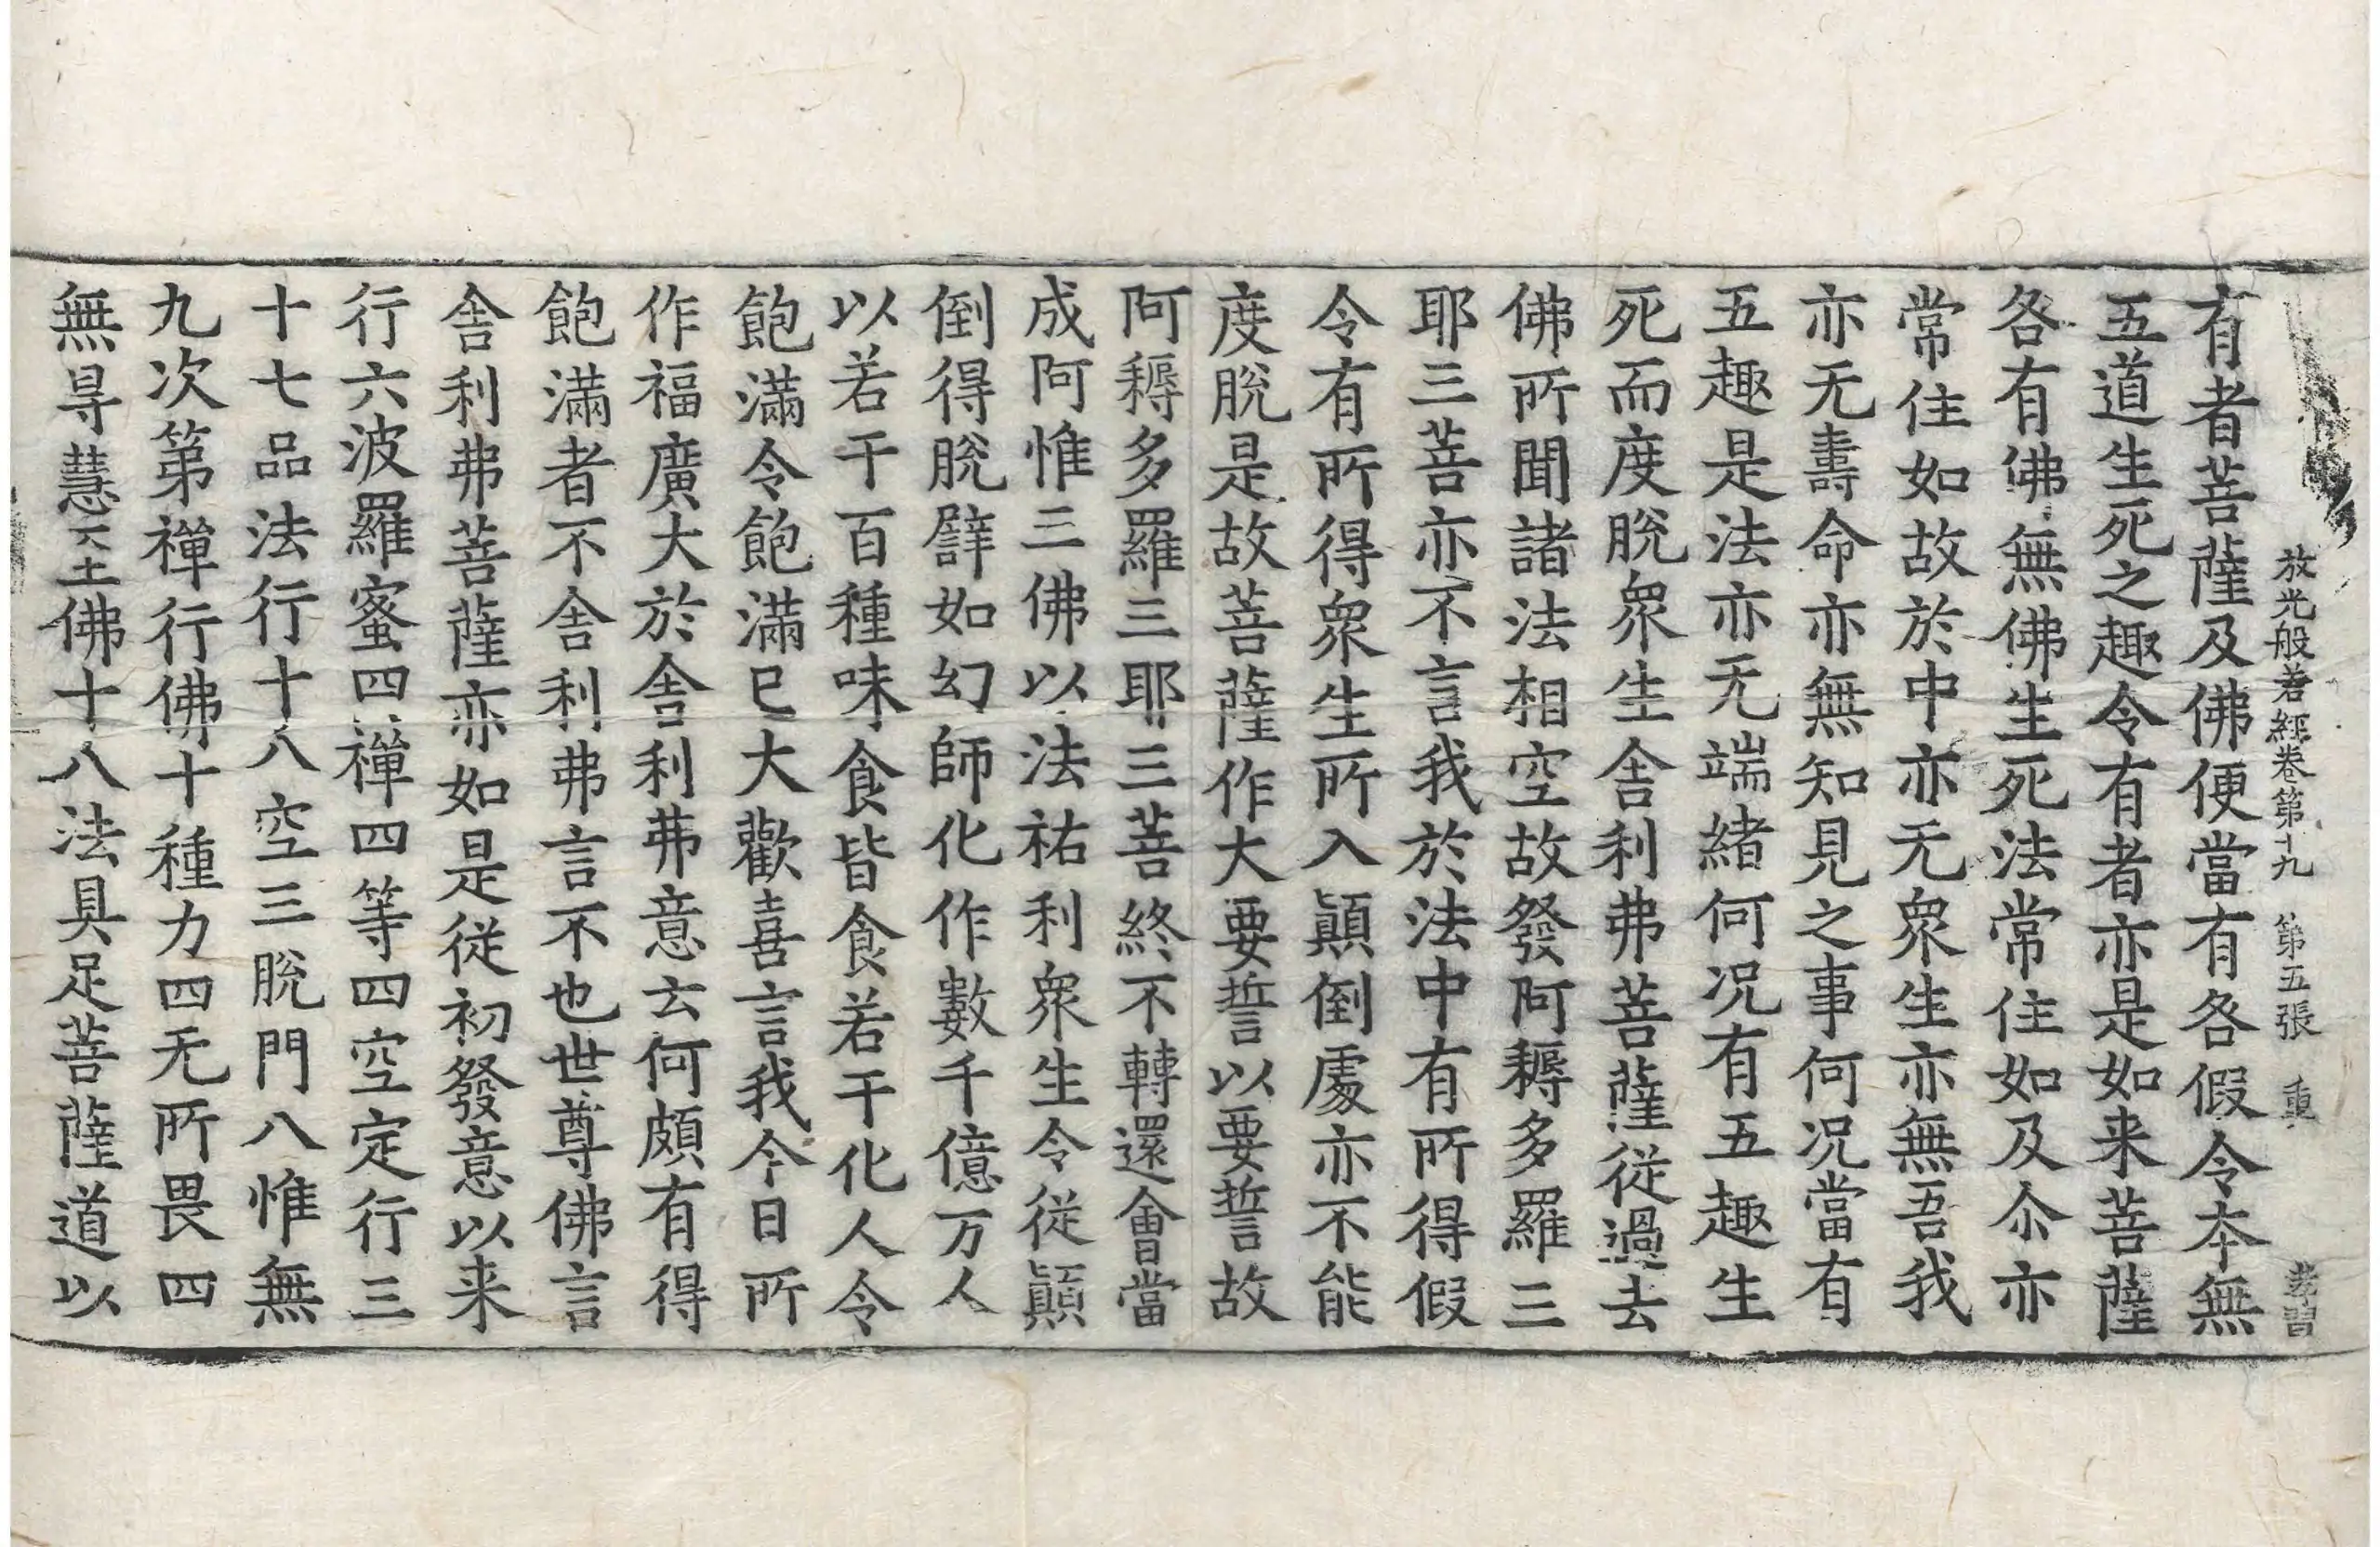 放光般若經卷第十九 第五張 重
有者菩薩及佛便當有各假令本無
五道生死之趣令有者亦是如来菩薩
各有佛無佛生死法常住如及尒亦
常住如故於中亦无衆生亦無吾我
亦无壽命亦無知見之事何况當有
五趣是法亦无端緒何况有五趣生
死而度脫衆生舍利弗菩薩從過去
佛所聞諸法相空故發阿耨多羅三
耶三菩亦不言我於法中有所得假
令有所得衆生所入顛倒處亦不能
度脫是故菩薩作大要誓以要誓故
阿耨多羅三耶三菩終不轉還會當
成阿惟三佛以法祐利衆生令從顛
倒得脫譬如幻師化作數千億万人
以若干百種味食皆食若干化人令
飽滿令飽滿已大歡喜言我今日所
作福廣大於舍利弗意云何頗有得
飽滿者不舍利弗言不也世尊佛言
舍利弗菩薩亦如是從初發意以来
行六波羅蜜四禪四等四空定行三
十七品法行十八空三脫門八惟無
九次第禪行佛十種力四无所畏四
無㝵慧六王佛十八法具足菩薩道以